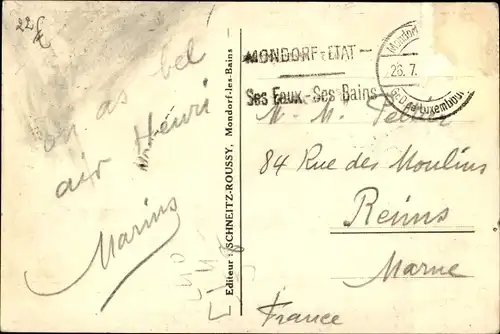 22
on as bel
air Henri
Marins
Editeur : SCHNEITZ-ROUSSY, Mondorf-les-Bains —
MONDORF-ETAT —
Ses Eaux - Ses Bains
Mondorf
26.7.
Gd Dché Luxembourg
M. M.
84 Rue des Moulins
Reims
Marne
France